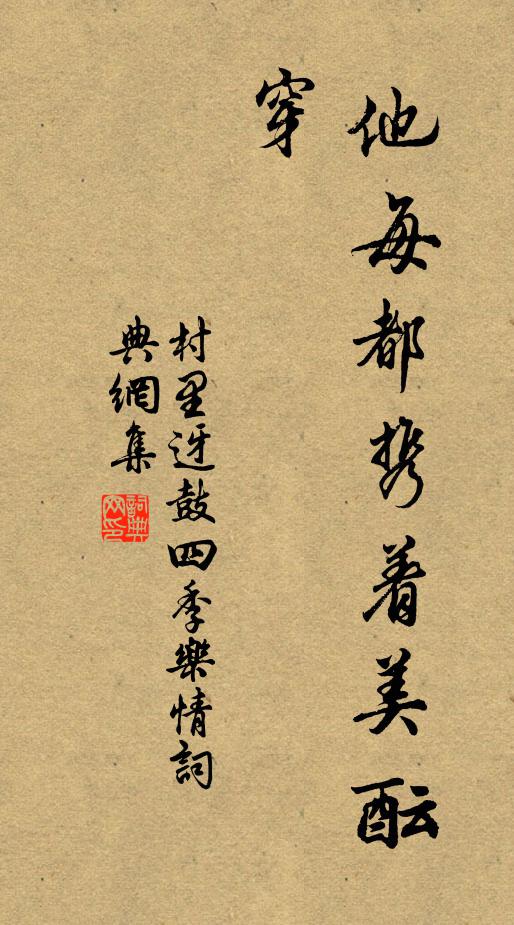 他每都携着美酝
穿
村里迓鼓四季樂情詞
典網集
詞典
网印